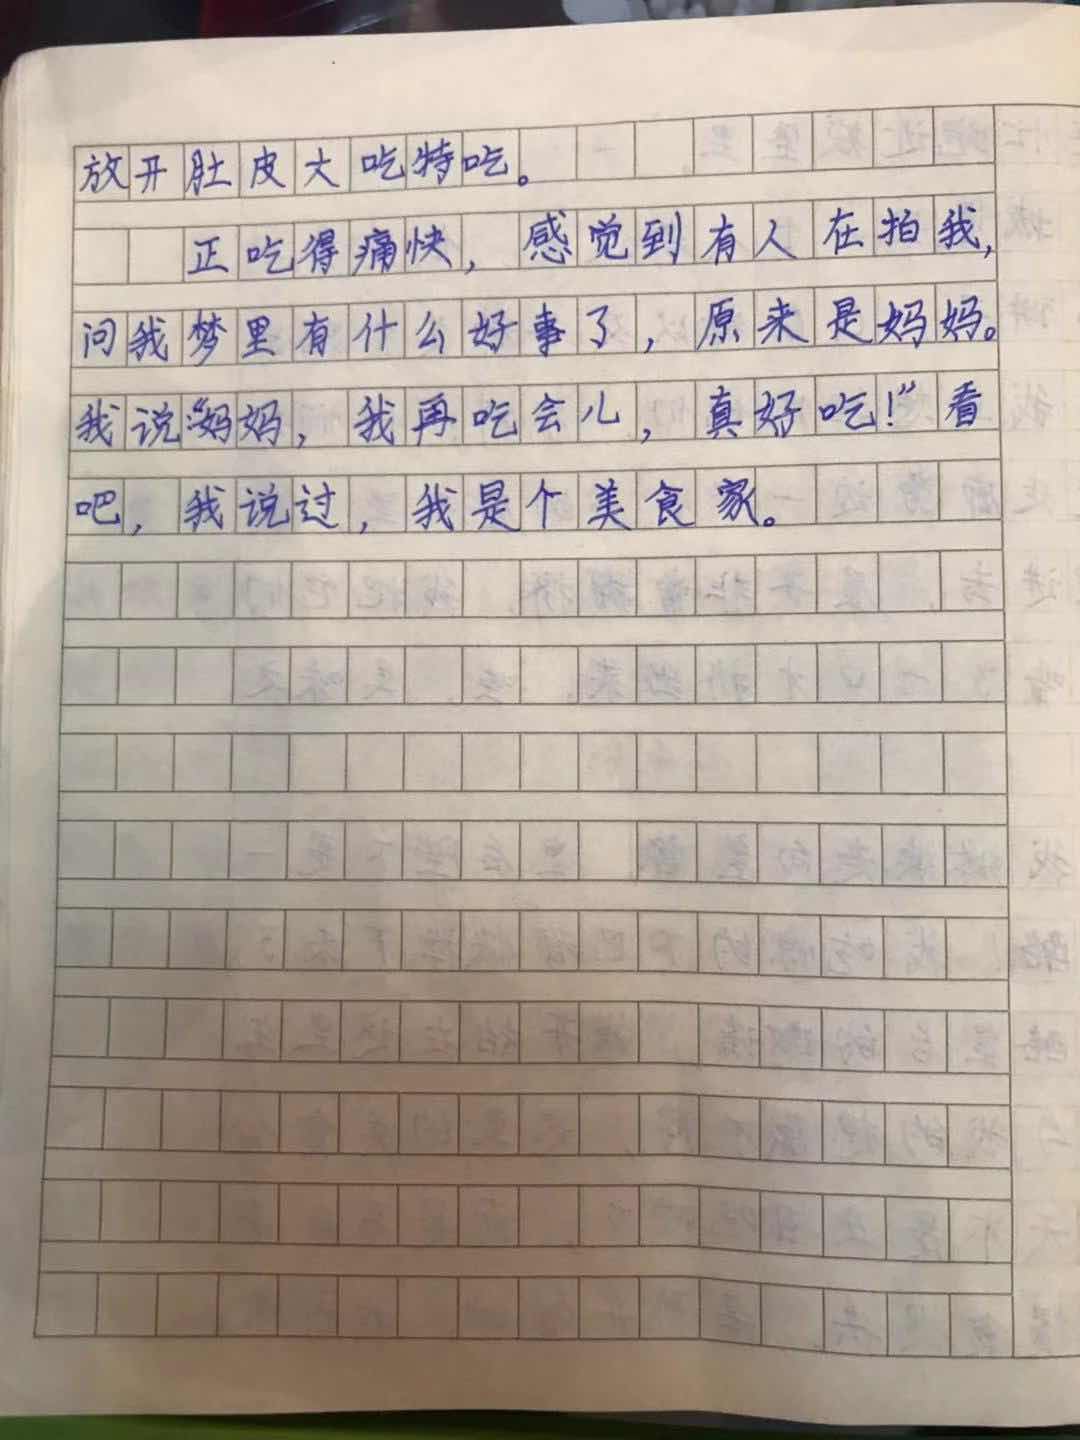 放开肚皮大吃特吃。
正吃得痛快，感觉到有人在拍我，
问我梦里有什么好事了，原来是妈妈。
我说“妈妈，我再吃会儿，真好吃！”看
吧，我说过，我是个美食家。